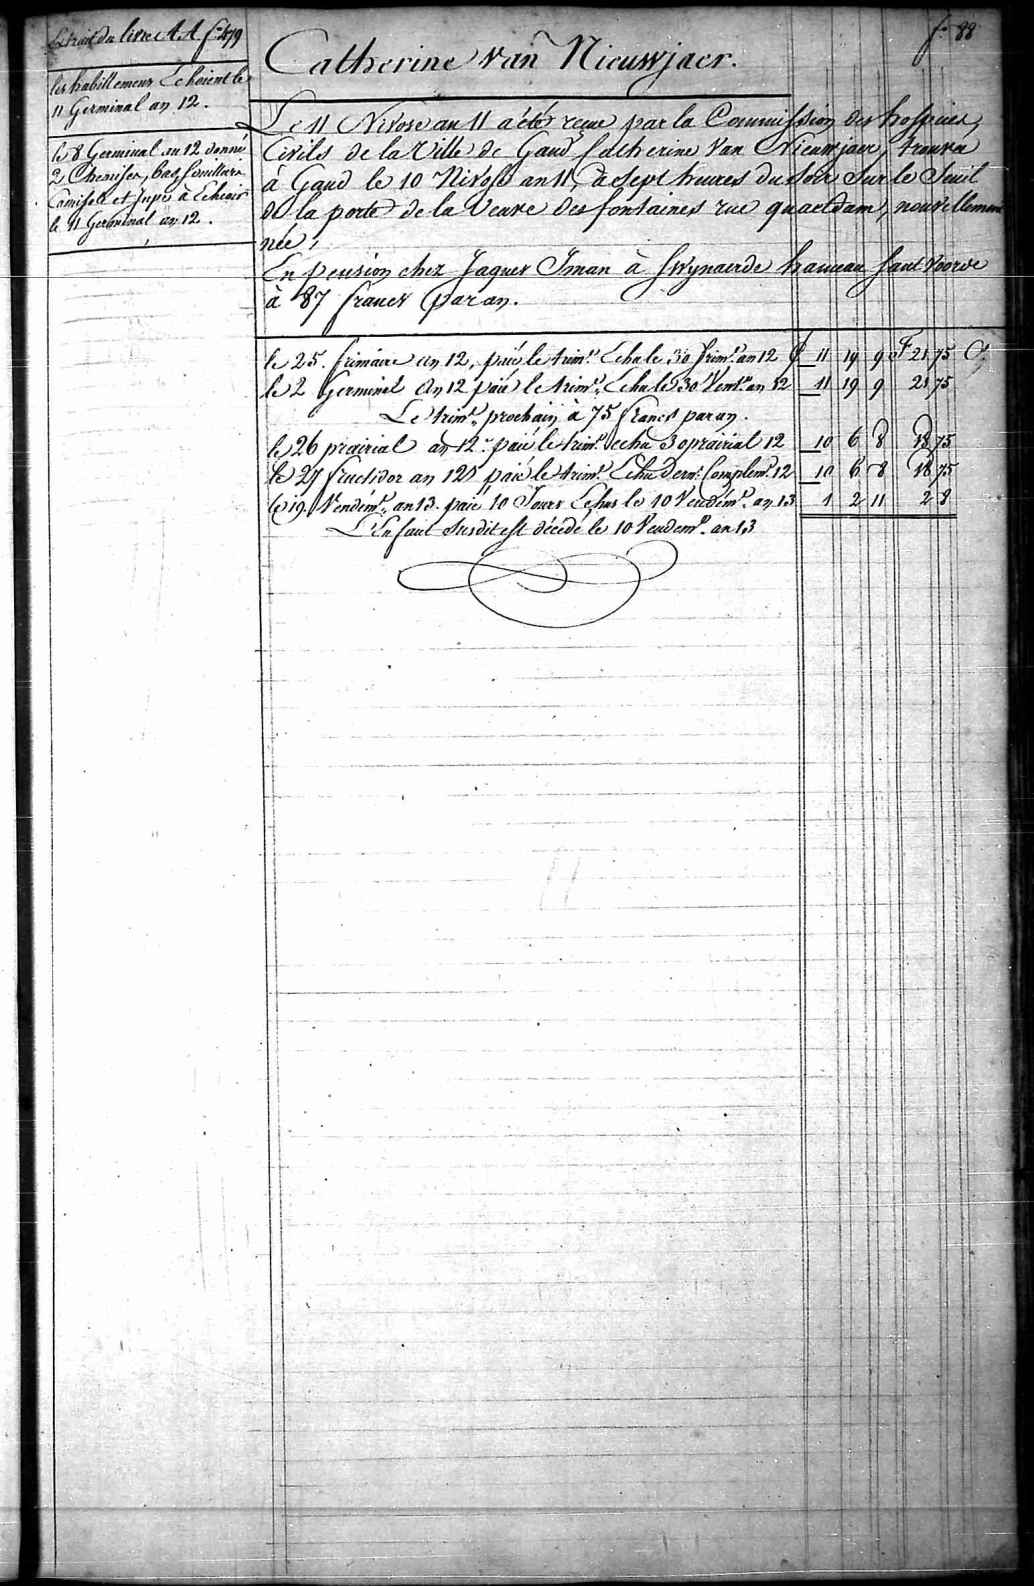 Extrait du livre AA f.o 479
f.o 88
Catherine van Nieuwjaer.
les habillemens Echoient le
11 Germinal an 12.
le 8 Germinal an 12 donné
2 Chemises, bas,
Camisole et Jupe à Echeoir
le 11 Germinal an 12.
Le 11 Nivose an 11 a été reçue par la Commission des hospices
Civils de la Ville de Gand Catherine Van Nieuwjaer, trouvée
à Gand le 10 Nivose an 11, à sept heures du soir sur le Seuil
de la porte de la Veuve Desfontaines rue quaetdam, nouvellement
née,
En pension chez Jaques Iman à Swynaerde hameau
à 87 francs par an.
le 25. frimaire an 12, paié le trim.e Echu le 30 frim.e an 12 £ 11 19 9 F 21,75 C.
le 2 Germinal an 12 paié le trim.e Echu le 30 Vent.e an 12 11 19 9 21,75
Le trim.e prochain à 75 francs par an.
le 26 prairial an 12. paié le trim.e echu 30 prairial 12 10 6 8 18,75
le 27 fructidor an 12 paié le trim.e Echu dern.r Complem.e 12 10 6 8 18,75
le 19 Vendém.e an 13. paié 10 Jours Echus le 10 Vendém.e an 13 1 2 11 2 8
L'Enfant susdit est décédé le 10 Vendém.e an 13